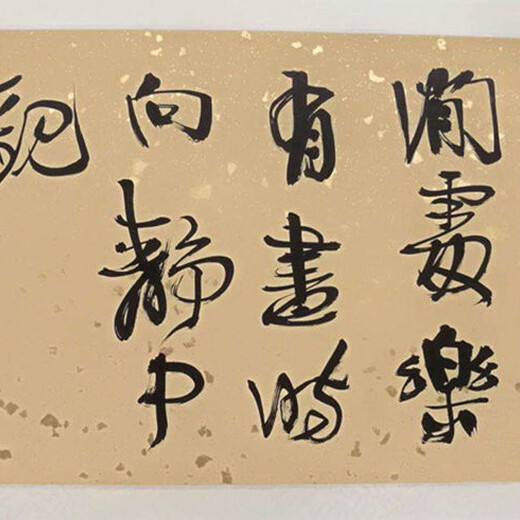 閒處樂
有畫時
向靜中
觀